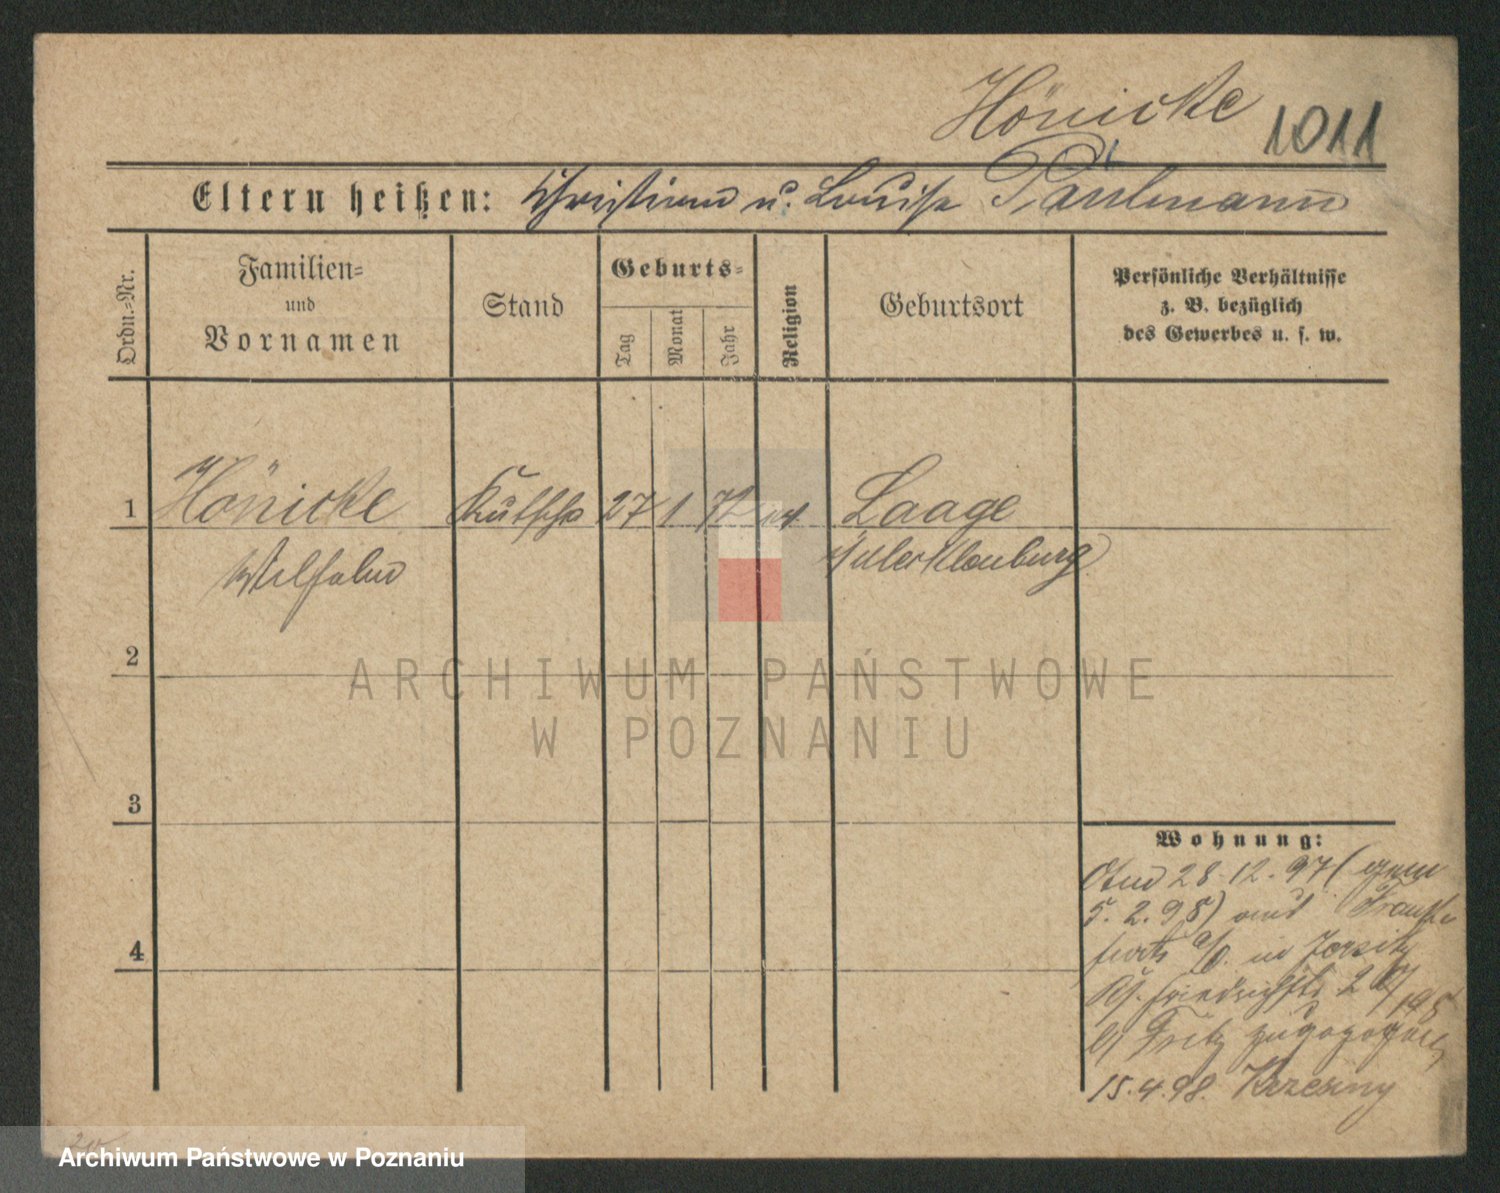 Hönicke 1011
Eltern heißen: Christian u. Louise Päulmann
Ordn.-Nr.
Familien-
und
Vornamen
Stand
Geburts-
Tag
Monat
Jahr
Religion
Geburtsort
Persönliche Verhältnisse
z. B. bezüglich
des Gewerbes u. s. w.
1 Hönicke Kutscher 27 1 72 ev Laage
Wilhelm Mecklenburg
2
ARCHIWUM PAŃSTWOWE
W POZNANIU
3
Wohnung:
28.12.97 (gem
5.2.98) aus Frank-
furt a/O. in Jersitz
Friedrichstr.
b/ Fritz zugezogen
4
15.4.98.
20
Archiwum Państwowe w Poznaniu